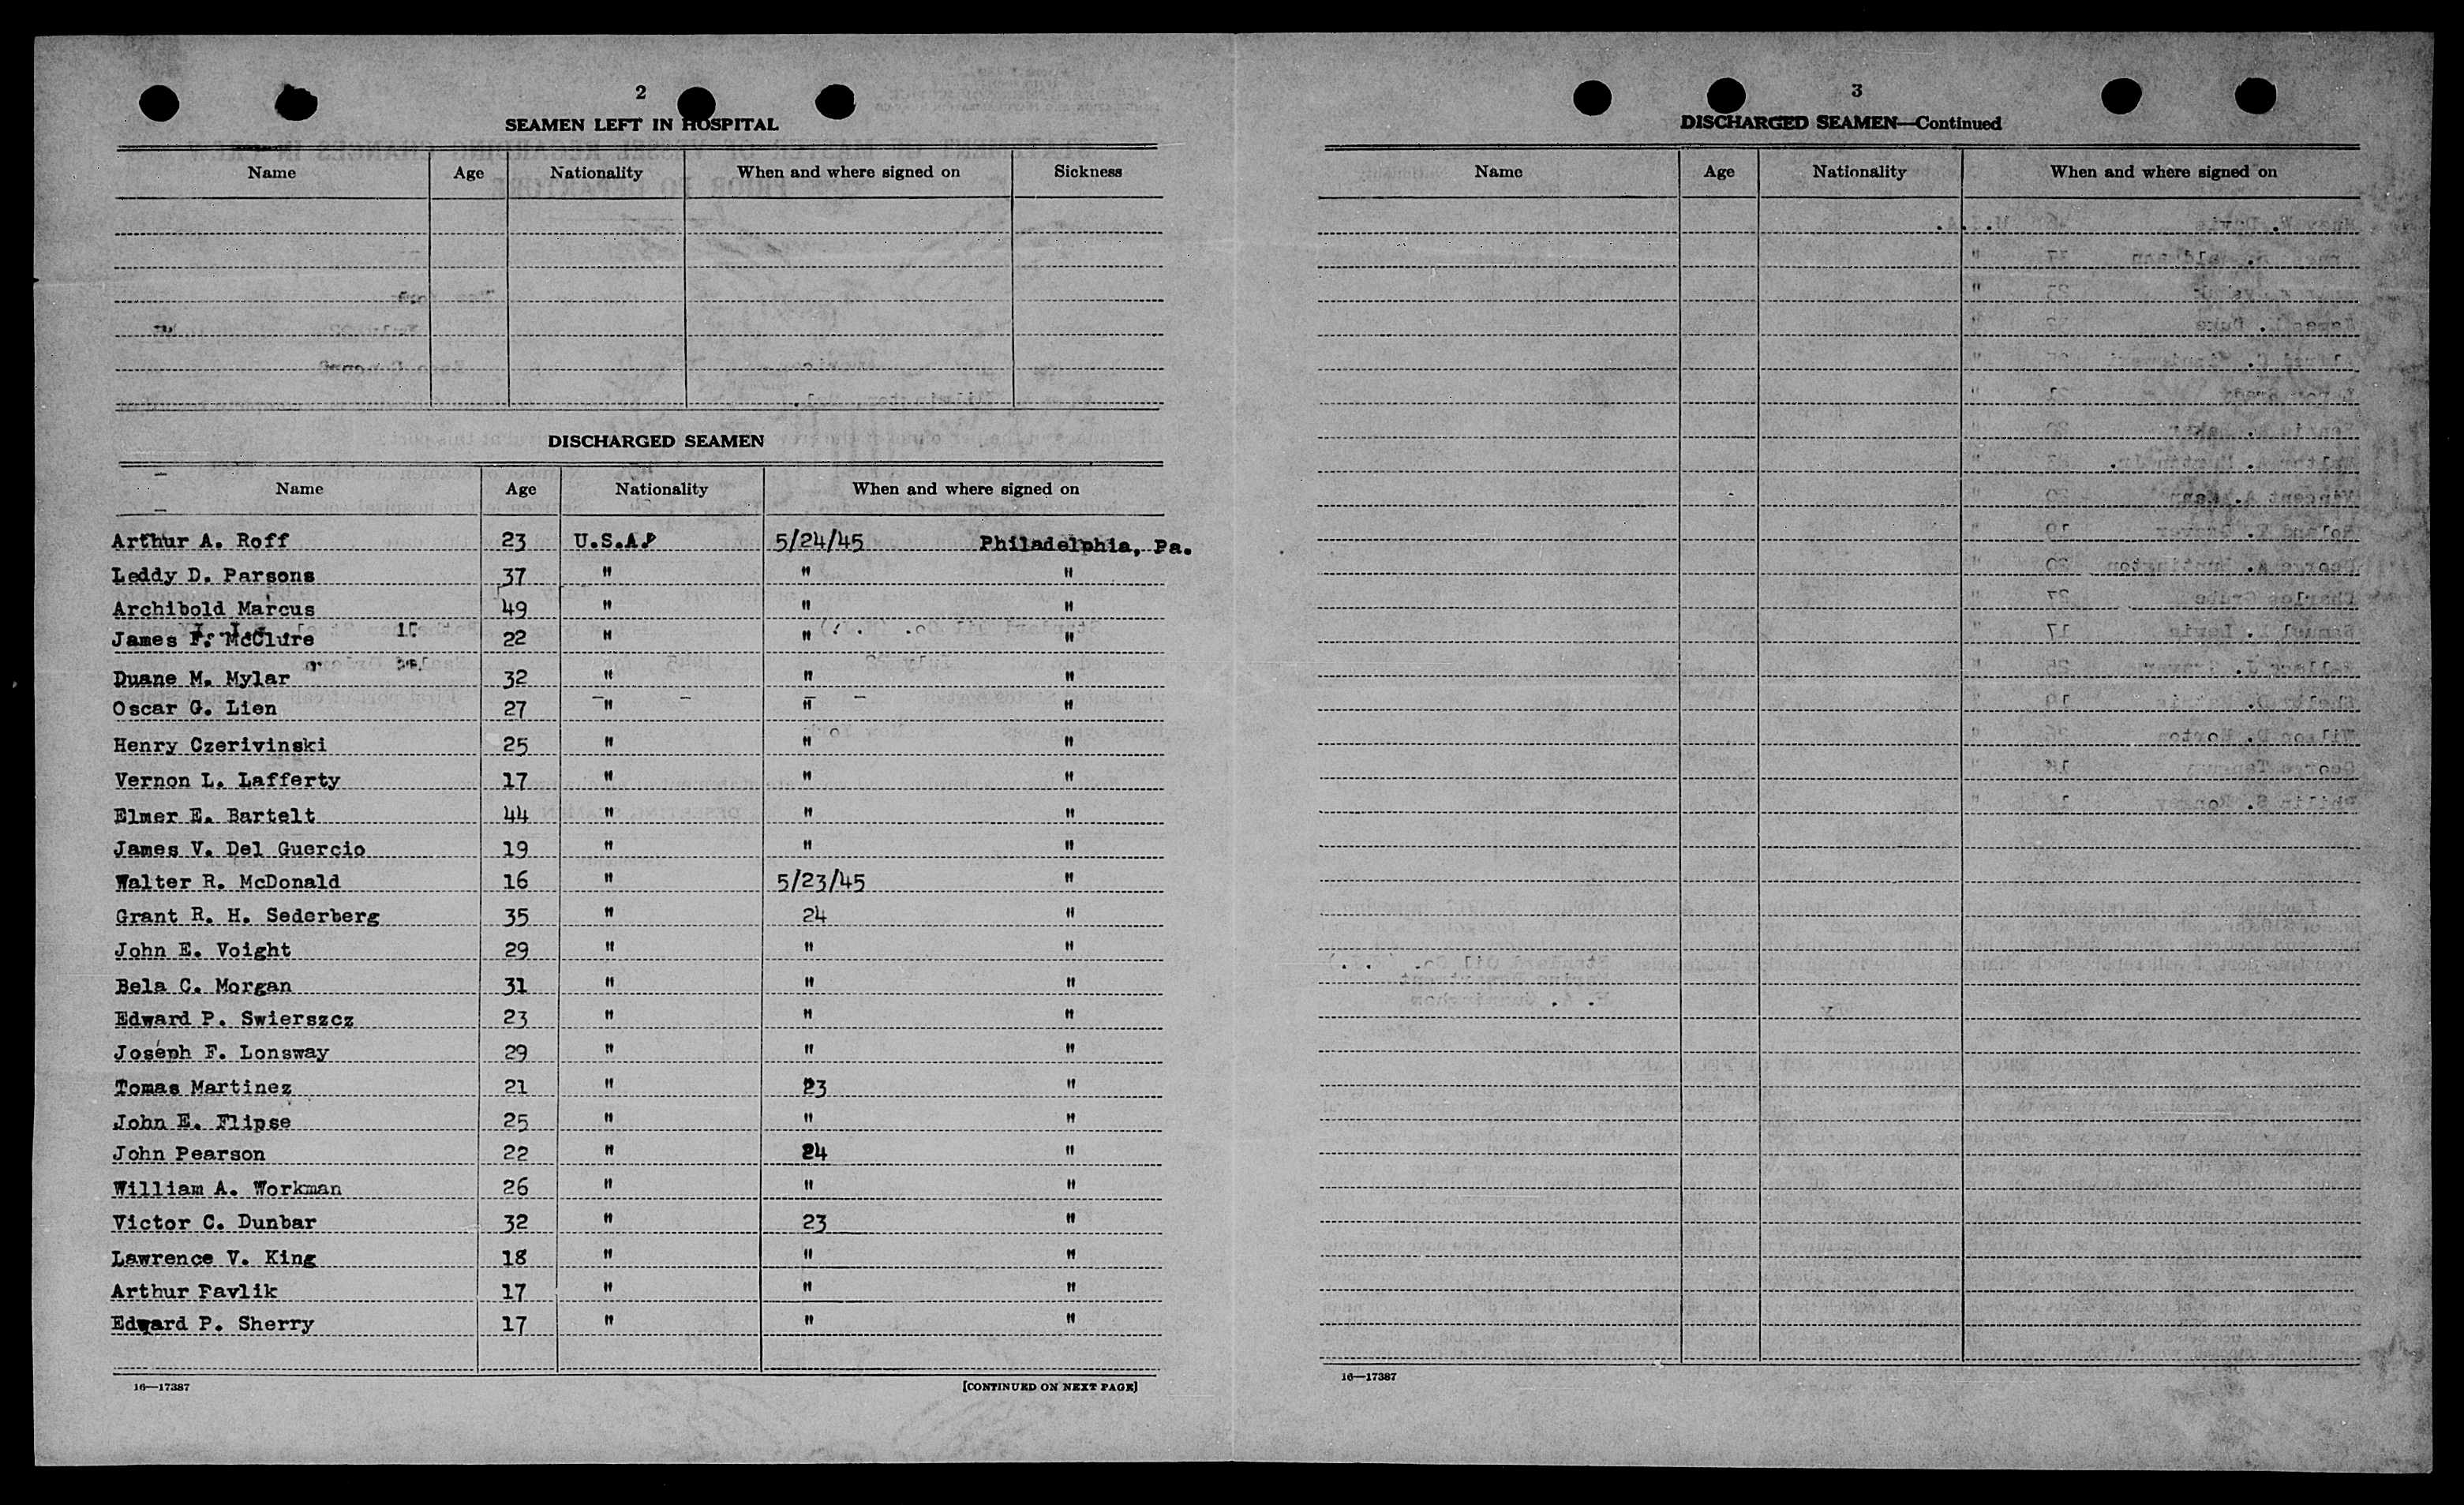 2
SEAMEN LEFT IN HOSPITAL
Name Age Nationality When and where signed on Sickness
DISCHARGED SEAMEN
Name Age Nationality When and where signed on
Arthur A. Roff 23 U.S.A. 5/24/45 Philadelphia, Pa.
Leddy D. Parsons 37 " " "
Archibold Marcus 49 " " "
James F. McClure 22 " " "
Duane M. Mylar 32 " " "
Oscar G. Lien 27 " " "
Henry Czerivinski 25 " " "
Vernon L. Lafferty 17 " " "
Elmer E. Bartelt 44 " " "
James V. Del Guercio 19 " " "
Walter R. McDonald 16 " 5/23/45 "
Grant R. H. Sederberg 35 " 24 "
John E. Voight 29 " " "
Bela C. Morgan 31 " " "
Edward P. Swierszcz 23 " " "
Joseph F. Lonsway 29 " " "
Tomas Martinez 21 " 23 "
John E. Flipse 25 " " "
John Pearson 22 " 24 "
William A. Workman 26 " " "
Victor C. Dunbar 32 " 23 "
Lawrence V. King 18 " " "
Arthur Pavlik 17 " " "
Edward P. Sherry 17 " " "
16—17387 [CONTINUED ON NEXT PAGE]
3
DISCHARGED SEAMEN—Continued
Name Age Nationality When and where signed on
16—17387